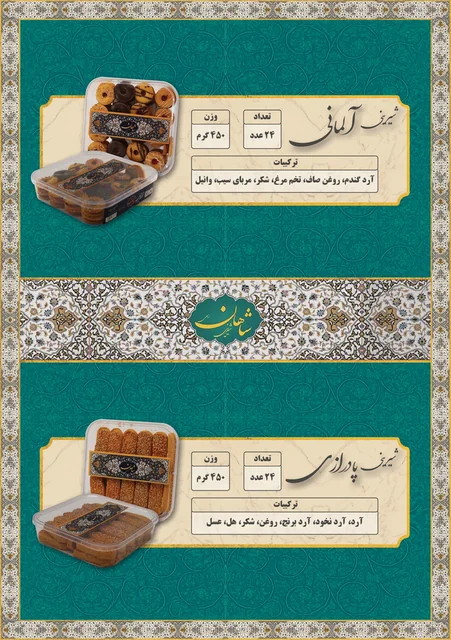 شیرینی آلمانی
تعداد
۲۴ عدد
وزن
۴۵۰ گرم
ترکیبات
آرد گندم، روغن صاف، تخم مرغ، شکر، مربای سیب، وانیل
شاهان
شیرینی پادرازی
تعداد
۲۴ عدد
وزن
۴۵۰ گرم
ترکیبات
آرد، آرد نخود، آرد برنج، روغن، شکر، هل، عسل